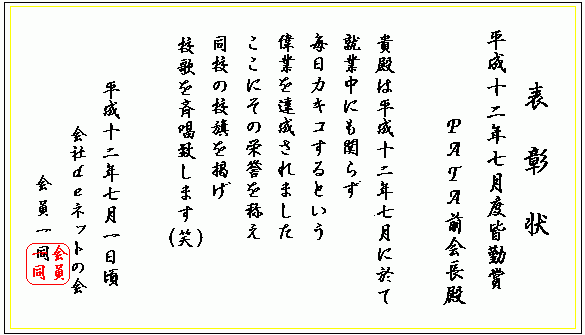 表彰状
平成十二年七月度皆勤賞
PATA前会長殿
貴殿は平成十二年七月に於て
就業中にも関らず
毎日カキコするという
偉業を達成されました
ここにその栄誉を称え
同校の校旗を掲げ
校歌を斉唱致します(笑)
平成十二年七月一日頃
会社deネットの会
会員一同
会員
一同